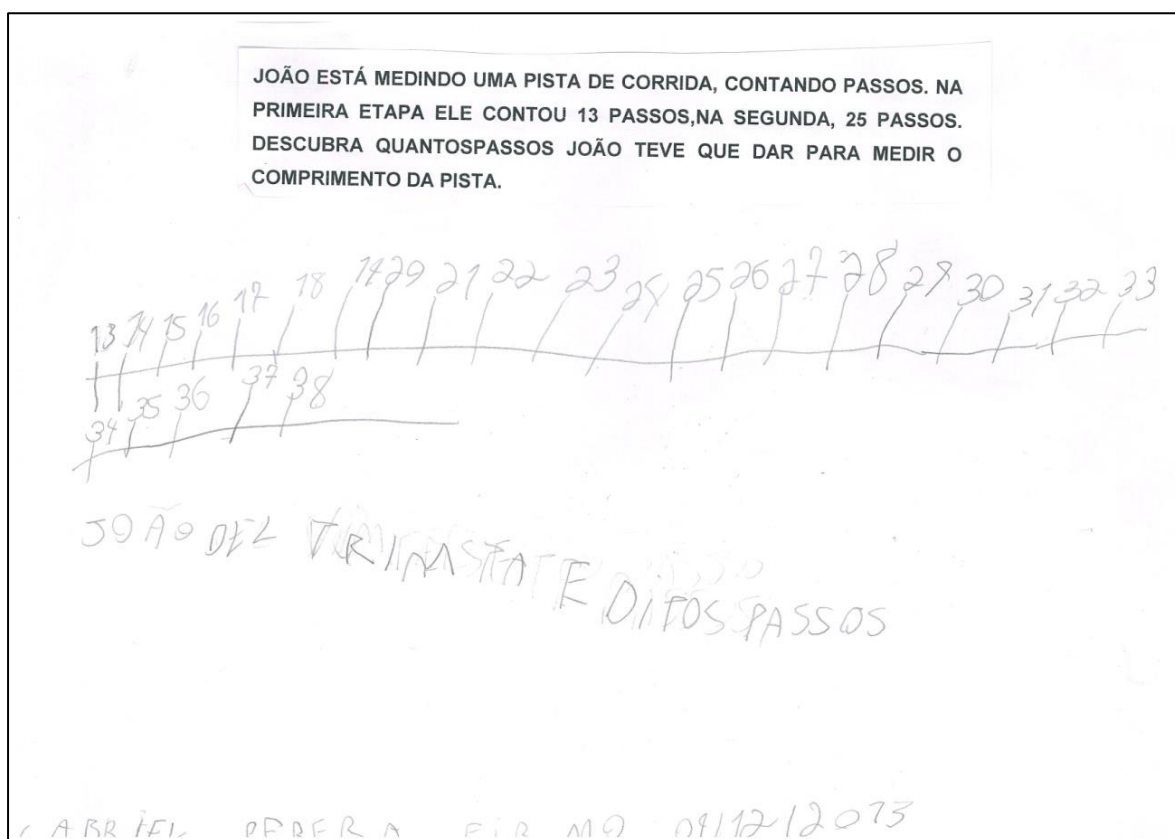 JOÃO ESTÁ MEDINDO UMA PISTA DE CORRIDA, CONTANDO PASSOS. NA
PRIMEIRA ETAPA ELE CONTOU 13 PASSOS,NA SEGUNDA, 25 PASSOS.
DESCUBRA QUANTOSPASSOS JOÃO TEVE QUE DAR PARA MEDIR O
COMPRIMENTO DA PISTA.
13 14 15 16 17 18 19 29 21 22 23 24 25 26 27 28 29 30 31 32 33
34 35 36 37 38
JOÃO DEL E PASSOS